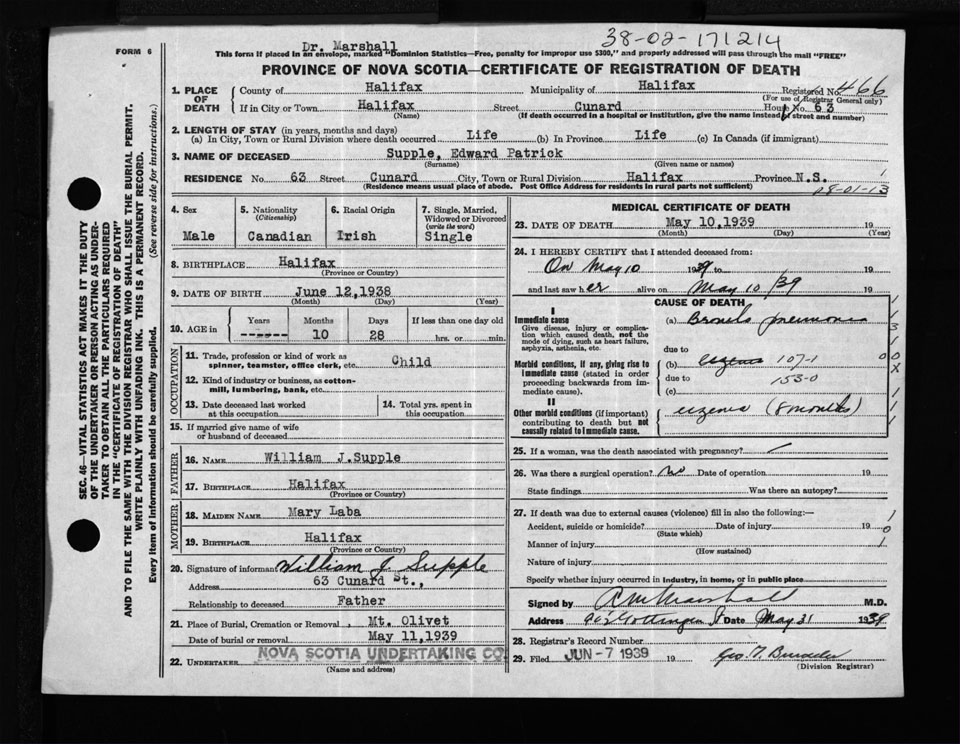 FORM 6
Dr. Marshall
38-02-171214
This form if placed in an envelope, marked "Dominion Statistics—Free, penalty for improper use $300," and properly addressed will pass through the mail "FREE"
PROVINCE OF NOVA SCOTIA—CERTIFICATE OF REGISTRATION OF DEATH
1. PLACE OF DEATH
County of Halifax Municipality of Halifax Registered No. 466
(For use of Registrar General only)
If in City or Town Halifax Street Cunard House No. 63
(Name) (If death occurred in a hospital or institution, give the name instead of street and number)
2. LENGTH OF STAY (in years, months and days)
(a) In City, Town or Rural Division where death occurred Life (b) In Province Life (c) In Canada (if immigrant)
3. NAME OF DECEASED Supple, Edward Patrick
(Surname) (Given name or names)
RESIDENCE No. 63 Street Cunard City, Town or Rural Division Halifax Province N.S.
(Residence means usual place of abode. Post Office Address for residents in rural parts not sufficient)
08-01-13
4. Sex
Male
5. Nationality
(Citizenship)
Canadian
6. Racial Origin
Irish
7. Single, Married, Widowed or Divorced
(write the word)
Single
8. BIRTHPLACE Halifax
(Province or Country)
9. DATE OF BIRTH June 12,1938
(Month) (Day) (Year)
10. AGE in
Years Months Days If less than one day old
------ 10 28 hrs. or min.
OCCUPATION
11. Trade, profession or kind of work as
spinner, teamster, office clerk, etc. Child
12. Kind of industry or business, as cotton-
mill, lumbering, bank, etc.
13. Date deceased last worked
at this occupation
14. Total yrs. spent in
this occupation
15. If married give name of wife
or husband of deceased
FATHER
16. NAME William J.Supple
17. BIRTHPLACE Halifax
(Province or Country)
MOTHER
18. MAIDEN NAME Mary Laba
19. BIRTHPLACE Halifax
(Province or Country)
20. Signature of informant William J Supple
Address 63 Cunard St.,
Relationship to deceased Father
21. Place of Burial, Cremation or Removal Mt. Olivet
Date of burial or removal May 11,1939
22. UNDERTAKER NOVA SCOTIA UNDERTAKING CO.
(Name and address)
MEDICAL CERTIFICATE OF DEATH
23. DATE OF DEATH May 10,1939 19
(Month) (Day) (Year)
24. I HEREBY CERTIFY that I attended deceased from:
On May 10 1939 to 19
and last saw her alive on May 10 /39 19
CAUSE OF DEATH
I
Immediate cause
Give disease, injury or complica-
tion which caused death, not the
mode of dying, such as heart failure,
asphyxia, asthenia, etc.
(a) pneumonia
due to
Morbid conditions, if any, giving rise to
immediate cause (stated in order
proceeding backwards from im-
mediate cause).
(b) 107-1
due to 153-0
(c)
II
Other morbid conditions (if important)
contributing to death but not
causally related to immediate cause.
(8 months)
25. If a woman, was the death associated with pregnancy?
26. Was there a surgical operation? no Date of operation 19
State findings Was there an autopsy?
27. If death was due to external causes (violence) fill in also the following:—
Accident, suicide or homicide? Date of injury 19
(State which)
Manner of injury
(How sustained)
Nature of injury
Specify whether injury occurred in industry, in home, or in public place
Signed by Marshall M.D.
Address Gottingen St Date May 31 1939
28. Registrar's Record Number
29. Filed JUN -7 1939 19
(Division Registrar)
SEC. 46—VITAL STATISTICS ACT MAKES IT THE DUTY
OF THE UNDERTAKER OR PERSON ACTING AS UNDER-
TAKER TO OBTAIN ALL THE PARTICULARS REQUIRED
IN THE "CERTIFICATE OF REGISTRATION OF DEATH"
AND TO FILE THE SAME WITH THE DIVISION REGISTRAR WHO SHALL ISSUE THE BURIAL PERMIT.
WRITE PLAINLY WITH UNFADING INK. THIS IS A PERMANENT RECORD.
Every item of information should be carefully supplied. (See reverse side for instructions.)